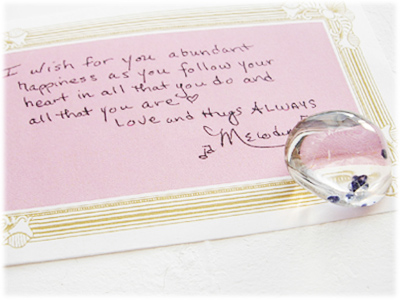 I wish for you abundant
happiness as you follow your
heart in all that you do and
all that you are
Love and Hugs ALWAYS